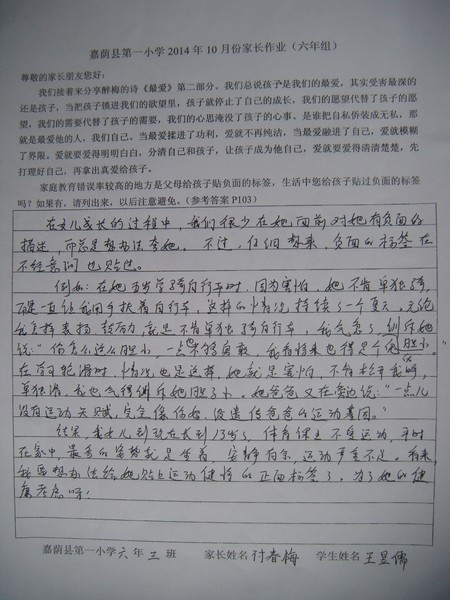 嘉荫县第一小学 2014 年 10 月份家长作业（六年组）
尊敬的家长朋友您好：
我们接着来分享醉梅的诗《最爱》第二部分。我们总说孩子是我们的最爱，其实受害最深的
还是孩子，当把孩子锁进我们的欲望里，孩子就停止了自己的成长，我们的愿望代替了孩子的愿
望，我们的需要代替了孩子的需要，我们的心思淹没了孩子的心事，是谁把自私伪装成无私，那
就是最爱他的人，我们自己。当最爱揉进了功利，爱就不再纯洁，当最爱融进了自己，爱就模糊
了界限。爱就要爱得明明白白，分清自己和孩子，让孩子成为他自己，爱就要爱得清清楚楚，先
打理好自己，再拿出真爱给孩子。
家庭教育错误率较高的地方是父母给孩子贴负面的标签，生活中您给孩子贴过负面的标签
吗？如果有，请列出来，以后注意避免。（参考答案 P103）
在女儿成长的过程中，我们很少在她面前对她有负面的
描述，而总是想办法夸她。不过，仔细想来，负面的标签在
不经意间也贴过。
例如：在她五岁学骑自行车时，因为害怕，她不肯单独骑，
硬是一直让我用手扶着自行车，这样的情况持续了一个夏天，无论
我怎样表扬、鼓励，就是不肯单独骑自行车，我气急了，训斥她
说：“你怎么这么胆小，一点也不够勇敢，我看将来也得是个胆小。”
在学轮滑时，情况也是这样，她就是害怕，不肯松手
单独滑，我也气得训斥她胆子小。她爸爸又在旁边说：“一点儿
没有运动天赋，完全像你妈，没遗传爸爸的运动基因。”
结果，我女儿到现在长到13岁了，体育课上不爱运动，平时
在家中，最多的姿势就是坐着，安静有余，运动严重不足。看来，
我要想办法给她贴上运动健将的正面标签了，为了她的健
康考虑呀！
嘉荫县第一小学六年三班 家长姓名 付春梅 学生姓名 王昱儒